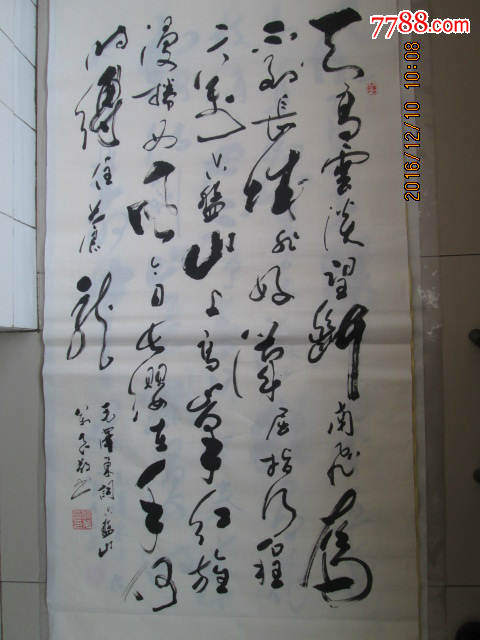 天高雲淡望斷南飛雁
不到長城非好漢屈指行程
二萬六盤山上高峯红旗
漫捲西风今日长缨在手何
时缚住蒼龍
毛澤東詞六盤山
书
7788.com
2016/12/10 10:08